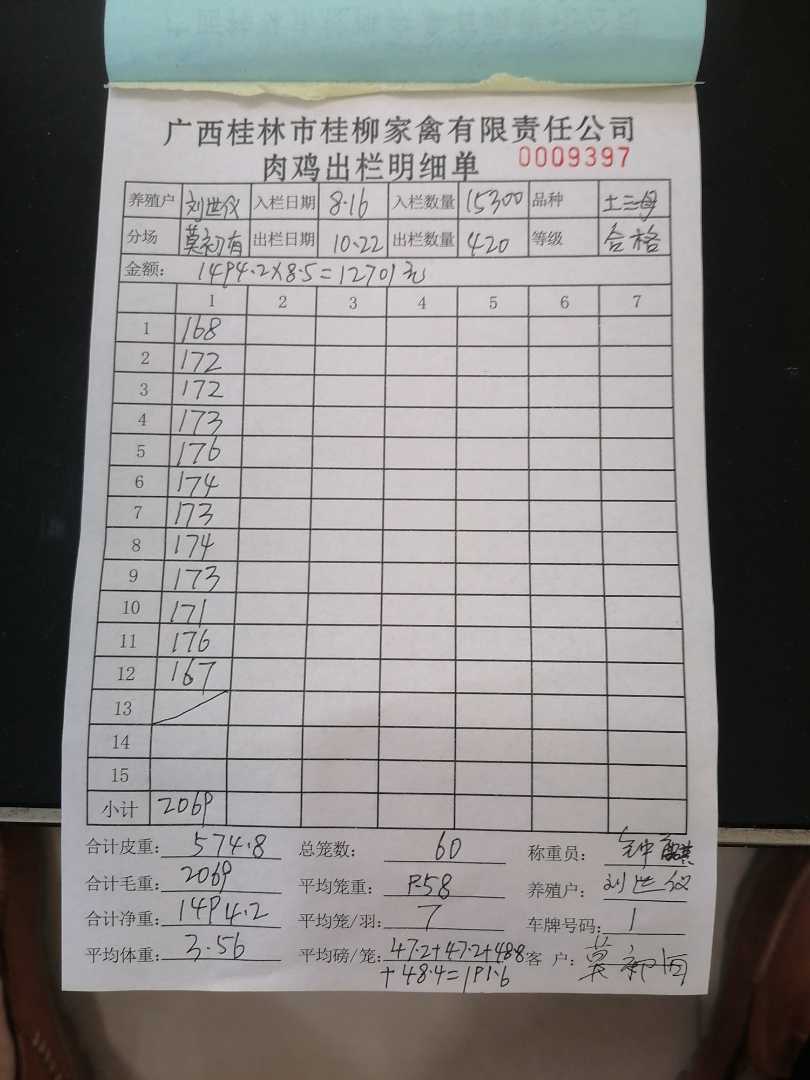 广西桂林市桂柳家禽有限责任公司
肉鸡出栏明细单 0009397
养殖户 刘世仪 入栏日期 8.16 入栏数量 15300 品种 土三母
分场 莫初有 出栏日期 10.22 出栏数量 420 等级 合格
金额: 1494.2×8.5=12701元
1 2 3 4 5 6 7
1 168
2 172
3 172
4 173
5 176
6 174
7 173
8 174
9 173
10 171
11 176
12 167
13
14
15
小计 2069
合计皮重: 574.8 总笼数: 60 称重员:
合计毛重: 2069 平均笼重: 9.58 养殖户: 刘世仪
合计净重: 1494.2 平均笼/羽: 7 车牌号码: 1
平均体重: 3.56 平均磅/笼: 47.2+47.2+48.8 客户: 莫初有
+48.4=191.6